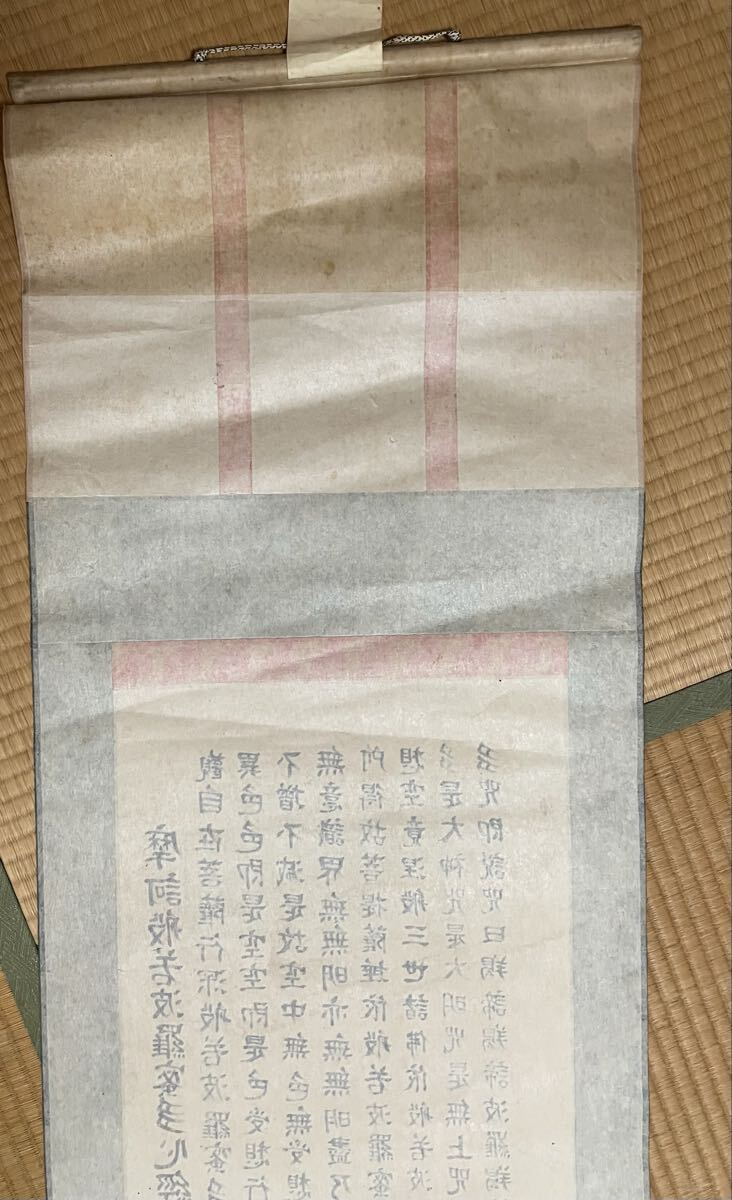 摩訶般若波羅蜜多心經
觀自在菩薩行深般若波羅蜜多
異色色即是空空即是色受想行
不增不減是故空中無色無受想
無意識界無無明亦無無明盡乃
所得故菩提薩埵依般若波羅蜜
想究竟涅般三世諸佛依般若波
多是大神咒是大明咒是無上咒
多咒即說咒曰揭諦揭諦波羅揭